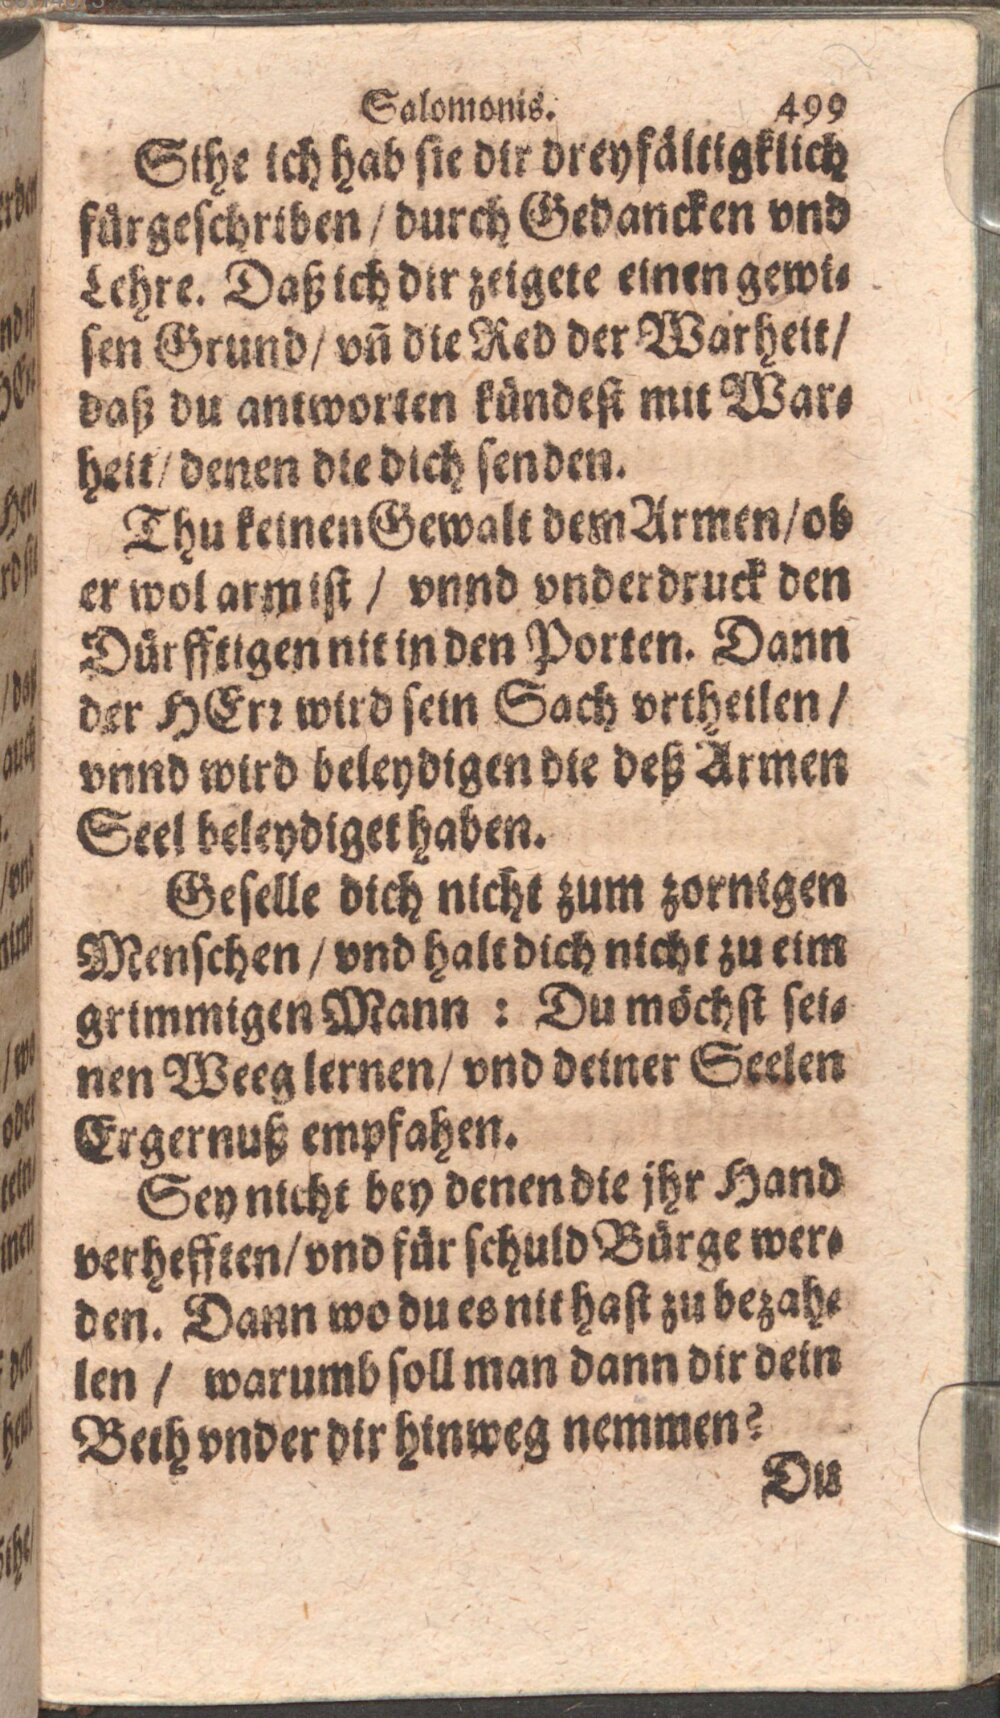 Salomonis. 499
Sihe ich hab sie dir dreyfältigklich
fürgeschriben / durch Gedancken vnd
Lehre. Daß ich dir zeigete einen gewi-
sen Grund / vñ die Red der Warheit /
daß du antworten kündest mit War-
heit / denen die dich senden.
Thu keinen Gewalt dem Armen / ob
er wol arm ist / vnnd vnderdruck den
Dürfftigen nit in den Porten. Dann
der HErr wird sein Sach vrtheilen /
vnnd wird beleydigen die deß Armen
Seel beleydiget haben.
Geselle dich nicht zum zornigen
Menschen / vnd halt dich nicht zu eim
grimmigen Mann : Du möchst sei-
nen Weeg lernen / vnd deiner Seelen
Ergernuß empfahen.
Sey nicht bey denen die jhr Hand
verhefften / vnd für schuld Bürge wer-
den. Dann wo du es nit hast zu bezah-
len / warumb soll man dann dir dein
Beth vnder dir hinweg nemmen?